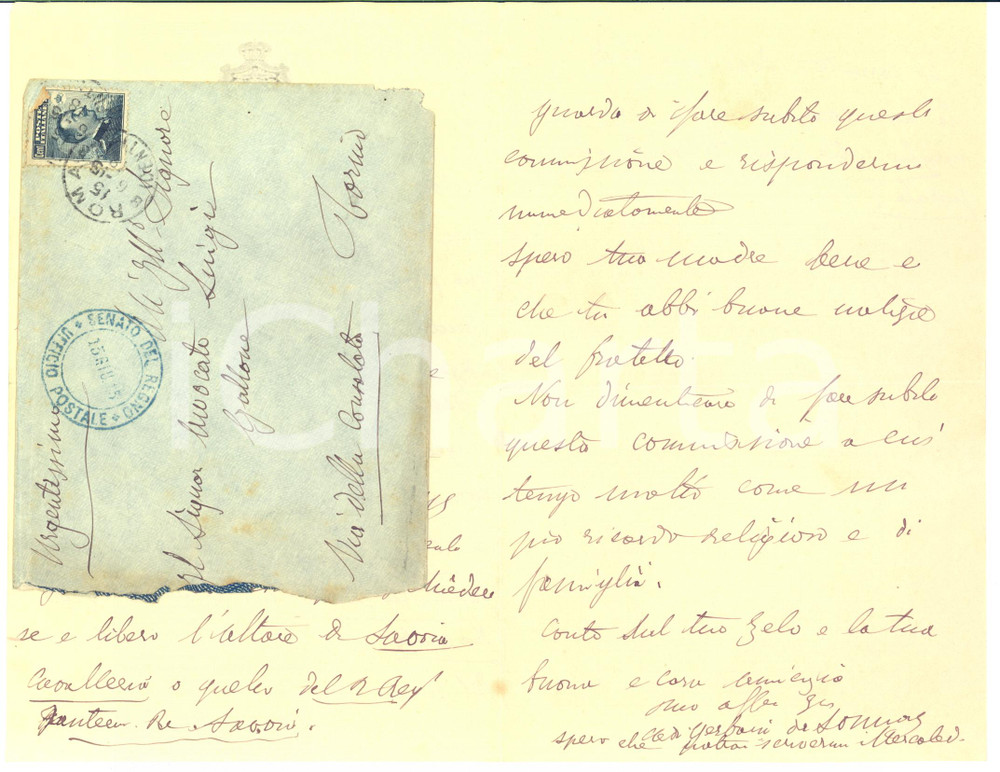 Urgentissima
All' Ill. Signore
Il Signor Avvocato
Luigi
Gallone
Via della Consolata
Torino
ROMA
15
SENATO DEL REGNO
UFFICIO POSTALE
POSTE
chiedere
se è libero l'altare di Savoia
Cavalleria o quello del
Re Savoia.
guarda di fare subito questa
commissione e rispondermi
immediatamente
spero tua madre bene e
che tu abbi buone notizie
del fratello.
Non dimenticare di fare subito
questa commissione a cui
tengo molto come un
pio ricordo religioso e di
famiglia.
Conto sul tuo zelo e la tua
buona e cara amicizia
tuo aff
di Sonnaz
spero che potrai scrivermi Mercoled.
iCharta